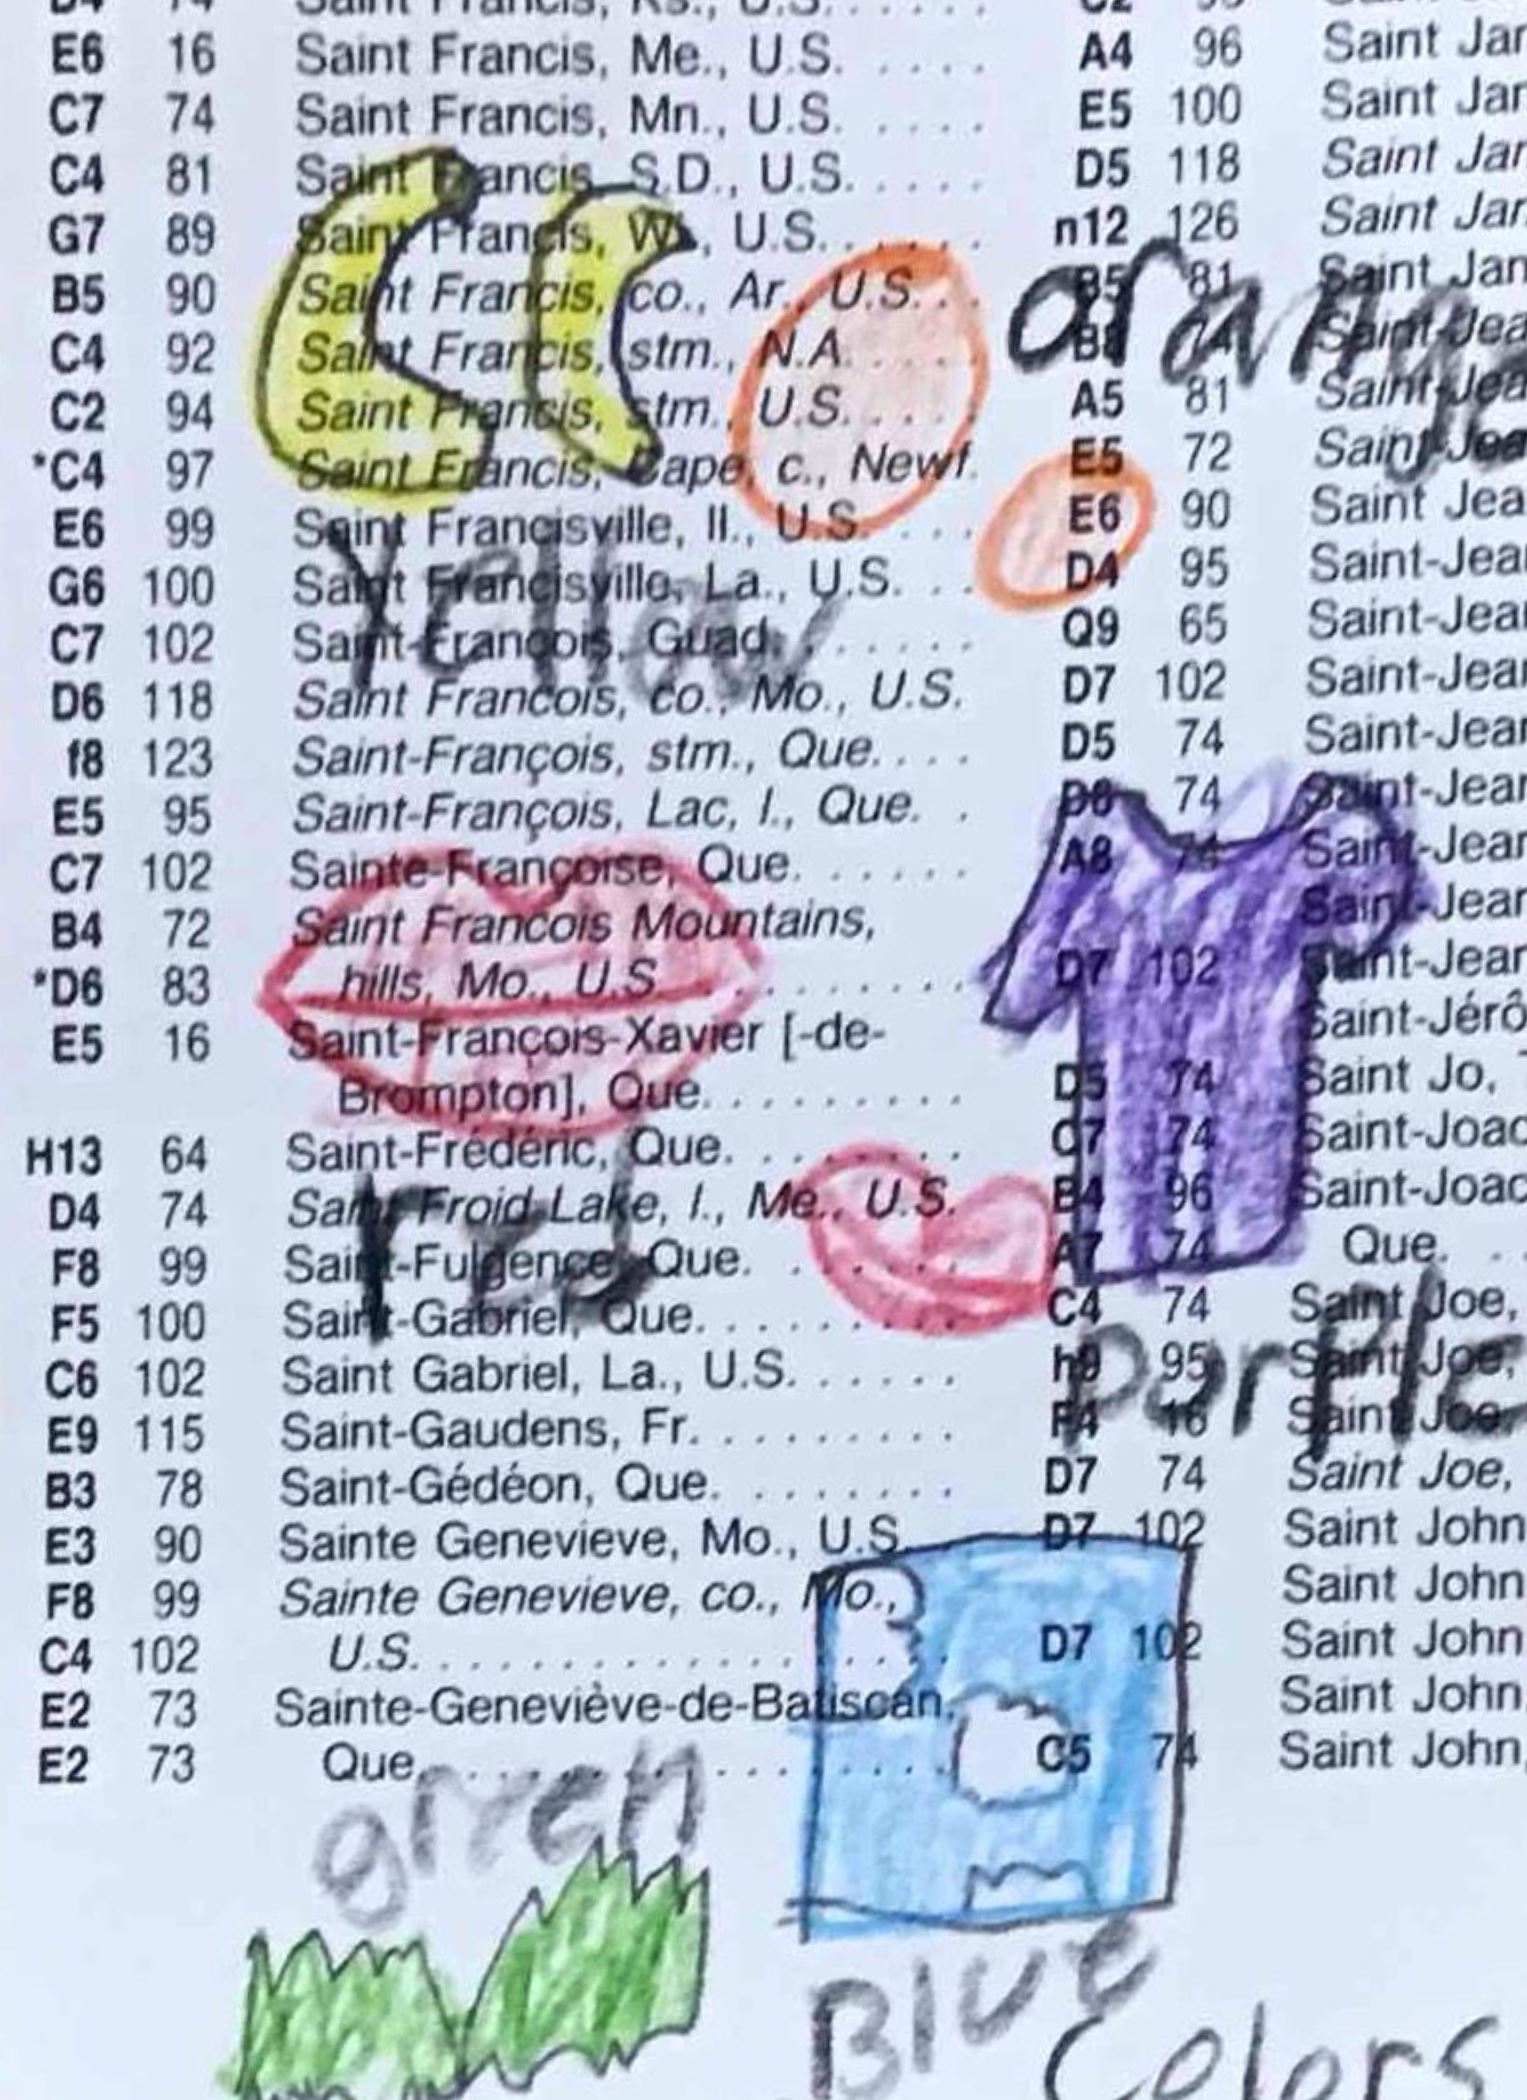 E6 16
C7 74
C4 81
G7 89
B5 90
C4 92
C2 94
*C4 97
E6 99
G6 100
C7 102
D6 118
f8 123
E5 95
C7 102
B4 72
*D6 83
E5 16
H13 64
D4 74
F8 99
F5 100
C6 102
E9 115
B3 78
E3 90
F8 99
C4 102
E2 73
E2 73
Saint Francis, Ks., U.S. . . . . . .
Saint Francis, Me., U.S. . . . . A4 96
Saint Francis, Mn., U.S. . . . . E5 100
Saint Francis, S.D., U.S. . . . . D5 118
Saint Francis, Wi., U.S. . . . . n12 126
Saint Francis, co., Ar., U.S. . . B5 81
Saint Francis, stm., N.A. . . . . B8 74
Saint Francis, stm., U.S. . . . . A5 81
Saint Francis, Cape, c., Newf. E5 72
Saint Francisville, Il., U.S. . . . E6 90
Saint Francisville, La., U.S. . . . D4 95
Saint-François, Guad. . . . . . . Q9 65
Saint Francois, co., Mo., U.S. D7 102
Saint-François, stm., Que. . . . D5 74
Saint-François, Lac, l., Que. . D6 74
Sainte-Françoise, Que. . . . . . A8 74
Saint Francois Mountains,
hills, Mo., U.S. . . . . . . . . . D7 102
Saint-François-Xavier [-de-
Brompton], Que. . . . . . . . . D5 74
Saint-Frédéric, Que. . . . . . . C7 74
Saint Froid Lake, l., Me., U.S. B4 96
Saint-Fulgence, Que. . . . . . . A7 74
Saint-Gabriel, Que. . . . . . . . C4 74
Saint Gabriel, La., U.S. . . . . . h9 95
Saint-Gaudens, Fr. . . . . . . . . F4 16
Saint-Gédéon, Que. . . . . . . . D7 74
Sainte Genevieve, Mo., U.S. . D7 102
Sainte Genevieve, co., Mo.,
U.S. . . . . . . . . . . . . . . . . . D7 102
Sainte-Geneviève-de-Batiscan,
Que. . . . . . . . . . . . . . . . . C5 74
Saint Jar
Saint Jar
Saint Jar
Saint Jar
Saint Jan
Saint-Jea
Saint-Jea
Saint-Jea
Saint Jea
Saint-Jea
Saint-Jear
Saint-Jear
Saint-Jear
Saint-Jear
Saint-Jear
Saint-Jear
Saint-Jear
Saint-Jérô
Saint Jo,
Saint-Joac
Saint-Joac
Que. . .
Saint Joe,
Saint Joe,
Saint Joe,
Saint Joe,
Saint John
Saint John
Saint John
Saint John
Saint John,
orange
Yellow
red
purple
green
Blue
Colors